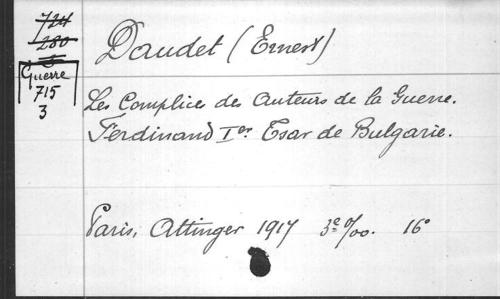 724
280
Guerre
715
3
Daudet (Ernest)
Les Complices des Auteurs de la Guerre.
Ferdinand Ier Tsar de Bulgarie.
Paris, Attinger 1917 3e %00. 16°